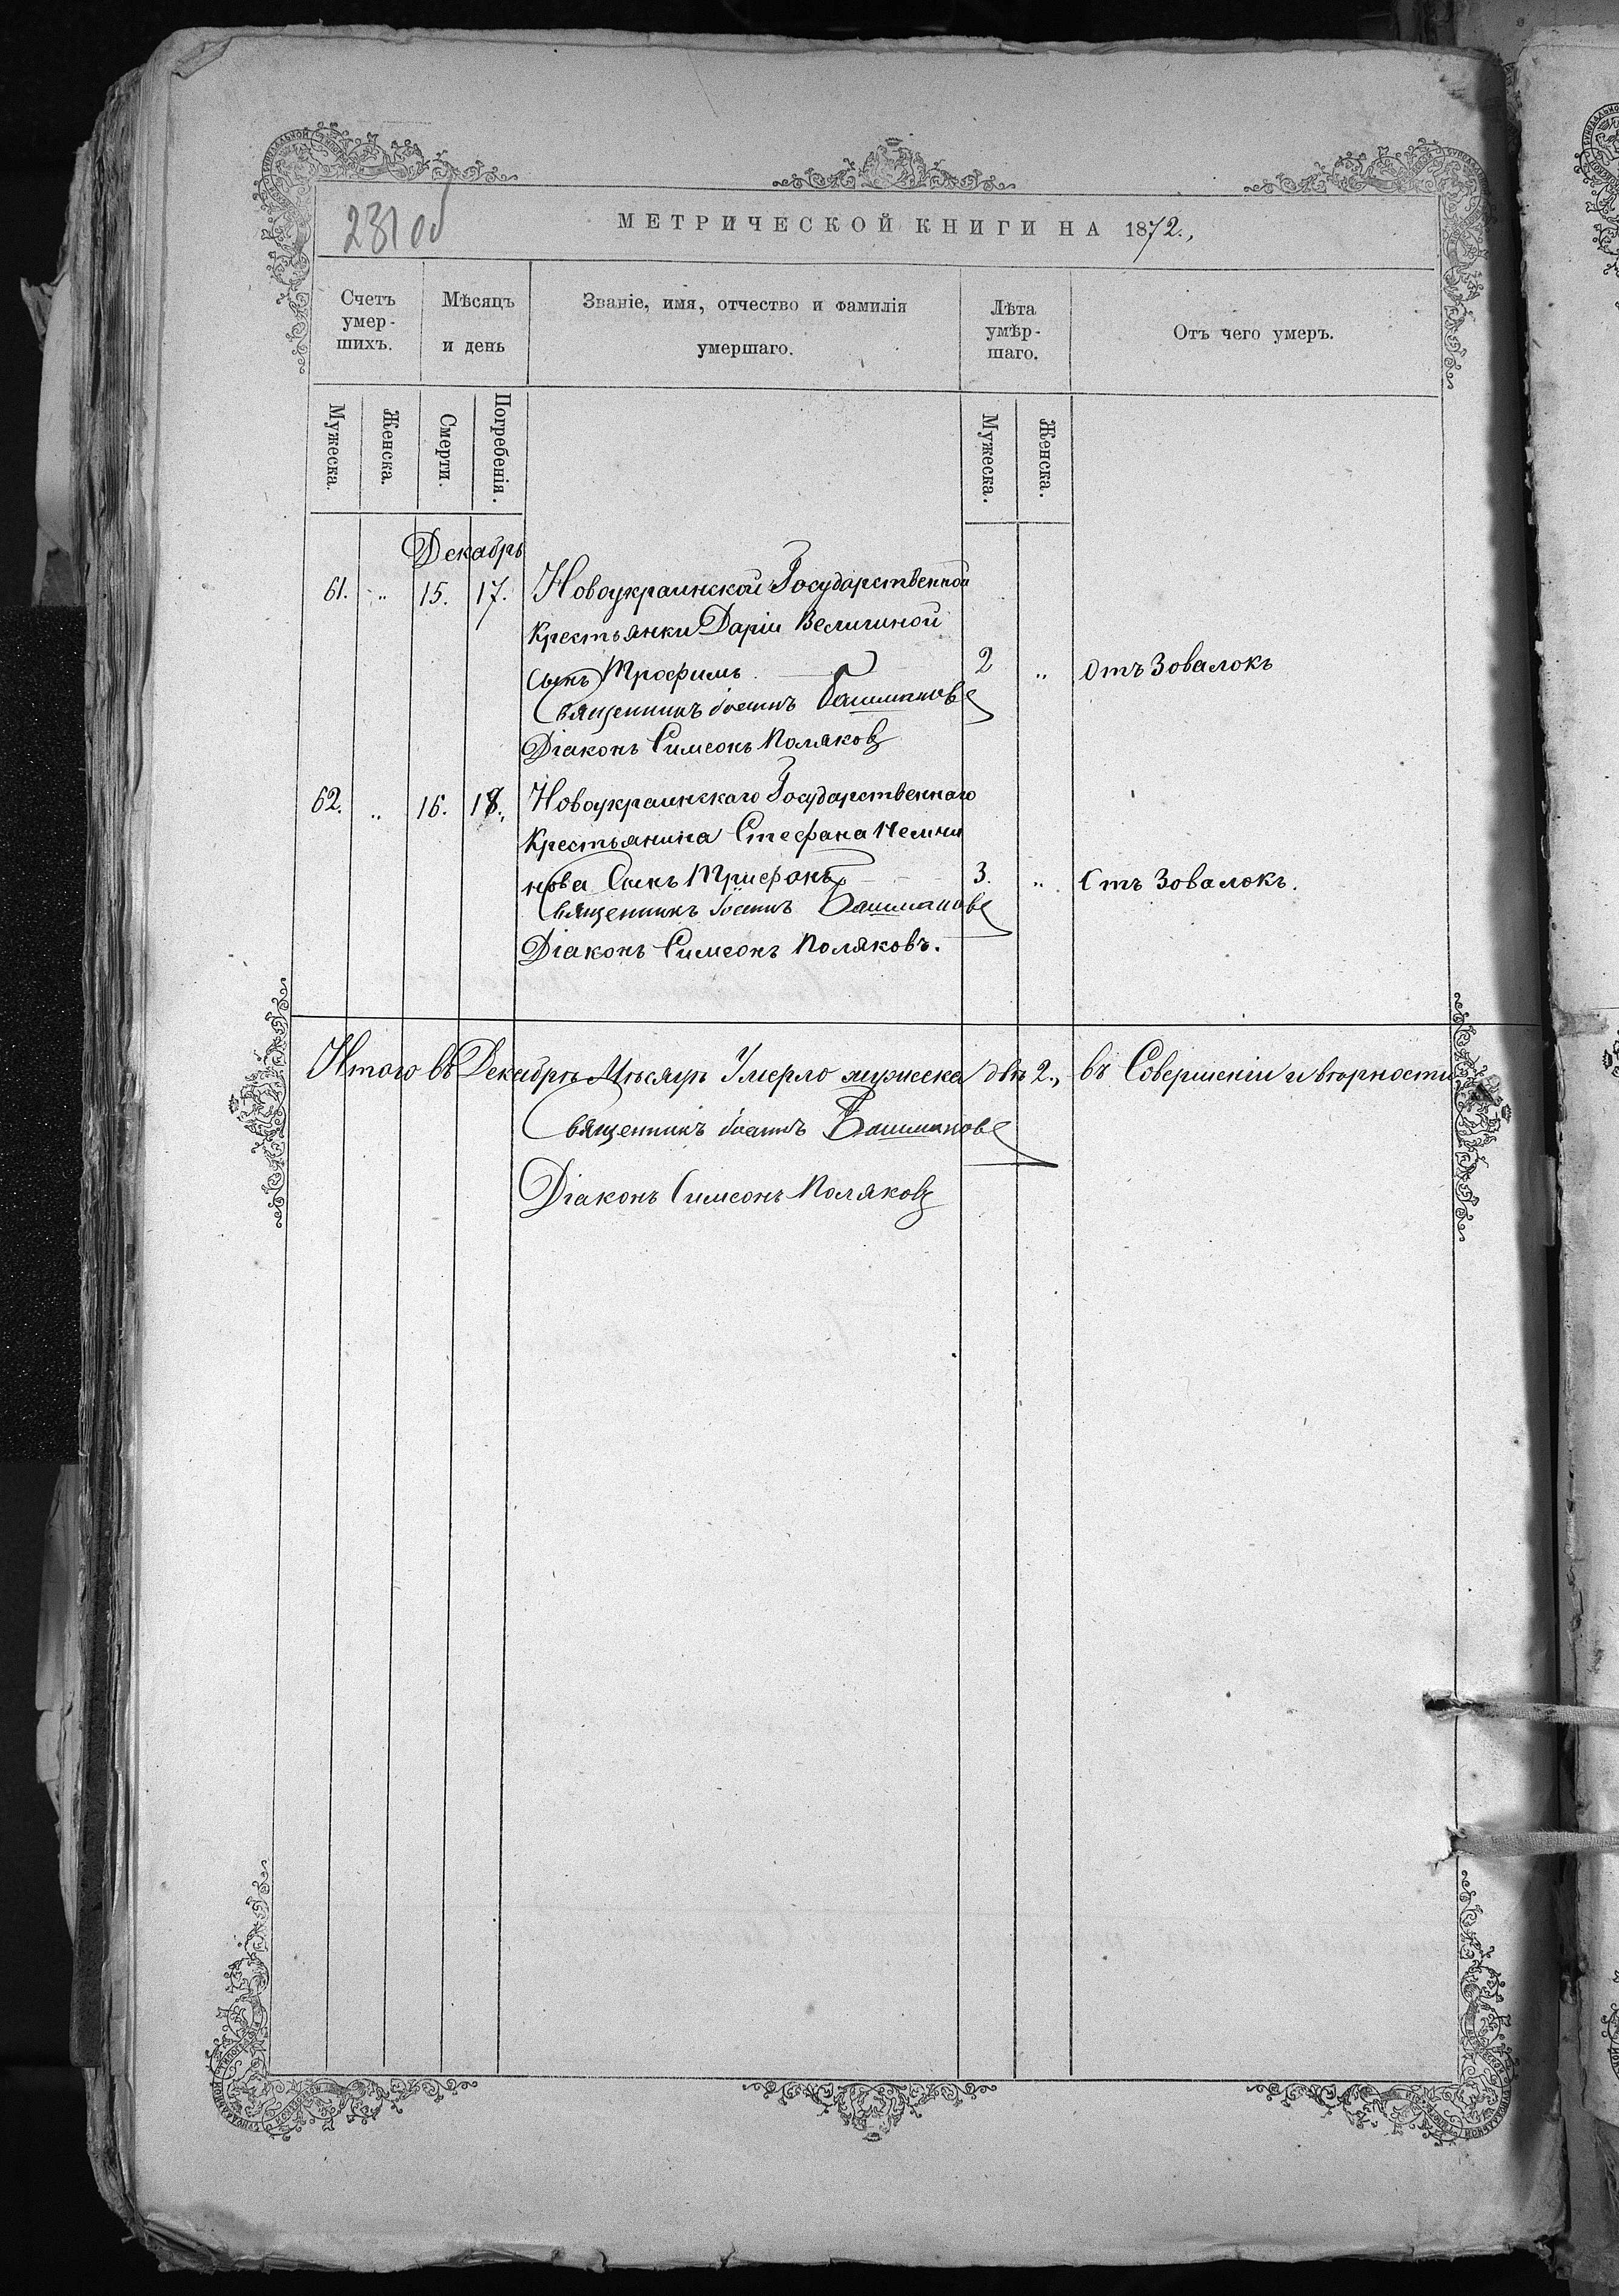 231 об
МЕТРИЧЕСКОЙ КНИГИ НА 1872.,
Счетъ умер-шихъ.
Мѣсяцъ и день
Званіе, имя, отчество и фамилія умершаго.
Лѣта умѣр-шаго.
Отъ чего умеръ.
Мужеска.
Женска.
Смерти.
Погребенія.
Мужеска.
Женска.
Декабрь
61. " 15. 17. Новоукраинской Государственной
Крестьянки Даріи Величиной
Сынъ Трофимъ 2 " Отъ Зовалокъ
Священникъ Іоаннъ Башмановъ
Діаконъ Симеонъ Поляковъ
62. " 16. 18. Новоукраинскаго Государственнаго
Крестьянина Стефана
нова Сынъ Трифонъ 3. " Отъ Зовалокъ.
Священникъ Іоаннъ Башмановъ
Діаконъ Симеонъ Поляковъ.
Итого въ Декабрѣ Мѣсяцѣ Умерло мужеска двѣ 2., въ Совершеніи и вѣрности
Священникъ Іоаннъ Башмановъ
Діаконъ Симеонъ Поляковъ